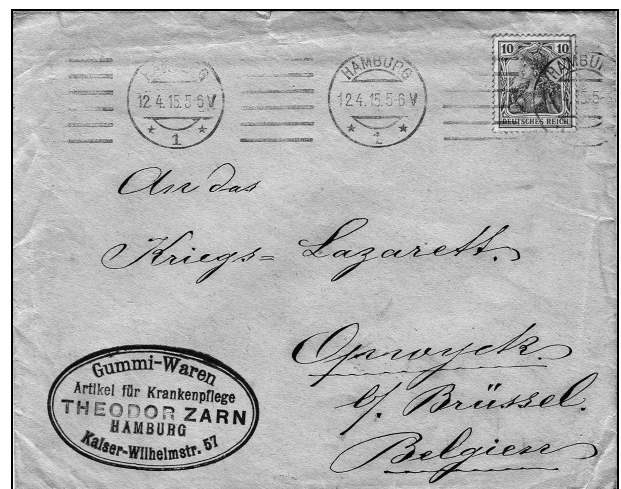 HAMBURG
12.4.15.5-6V
1
HAMBURG
12.4.15.5-6V
1
10 10
DEUTSCHES REICH
HAMBU
An das
Kriegs= Lazarett.
Opwyck.
b/ Brüssel.
Belgien
Gummi-Waren
Artikel für Krankenpflege
THEODOR ZARN
HAMBURG
Kaiser-Wilhelmstr. 57